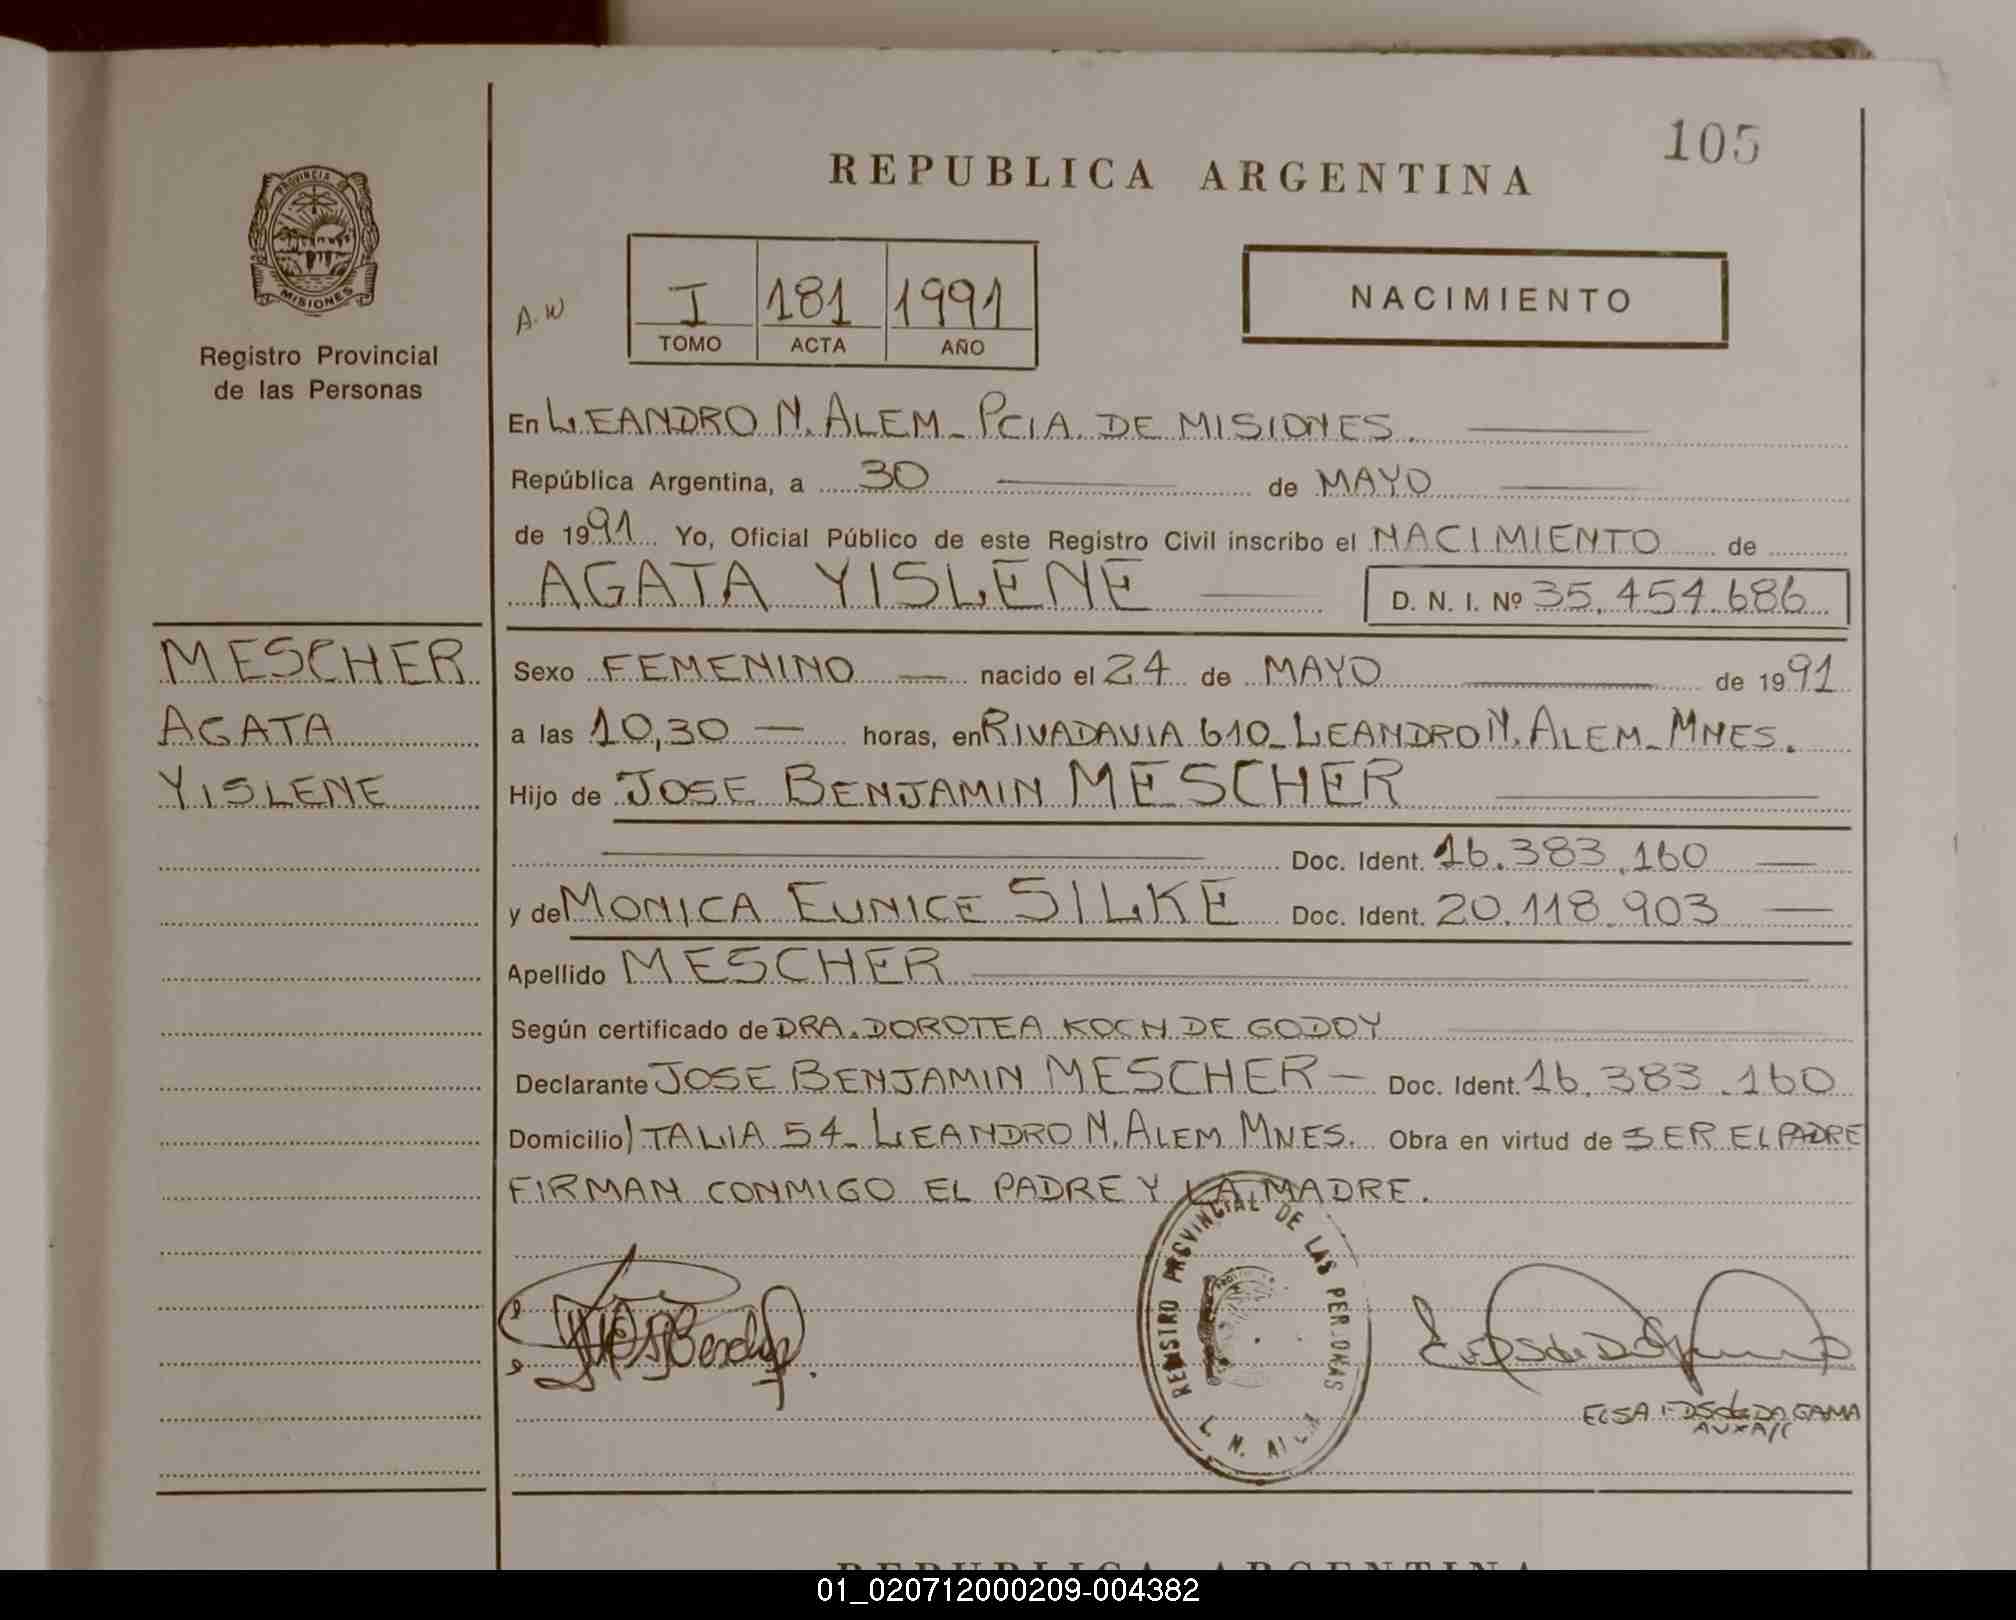 105
REPUBLICA ARGENTINA
PROVINCIA DE
MISIONES
Registro Provincial
de las Personas
A.W
I 181 1991
TOMO ACTA AÑO
NACIMIENTO
En LEANDRO N. ALEM - PCIA. DE MISIONES.
República Argentina, a 30 de MAYO
de 1991 Yo, Oficial Público de este Registro Civil inscribo el NACIMIENTO de
AGATA YISLENE D. N. I. Nº 35.454.686
MESCHER
AGATA
YISLENE
Sexo FEMENINO nacido el 24 de MAYO de 1991
a las 10,30 horas, en RIVADAVIA 610 - LEANDRO N. ALEM - MNES.
Hijo de JOSE BENJAMIN MESCHER
Doc. Ident. 16.383.160
y de MONICA EUNICE SILKE Doc. Ident. 20.118.903
Apellido MESCHER
Según certificado de DRA. DOROTEA KOCH DE GODOY
Declarante JOSE BENJAMIN MESCHER - Doc. Ident. 16.383.160
Domicilio ITALIA 54 - LEANDRO N. ALEM MNES. Obra en virtud de SER EL PADRE
FIRMAN CONMIGO EL PADRE Y LA MADRE.
REGISTRO PROVINCIAL DE LAS PERSONAS
L. N. ALEM
ELSA DA GAMA
REPUBLICA ARGENTINA
01_020712000209-004382